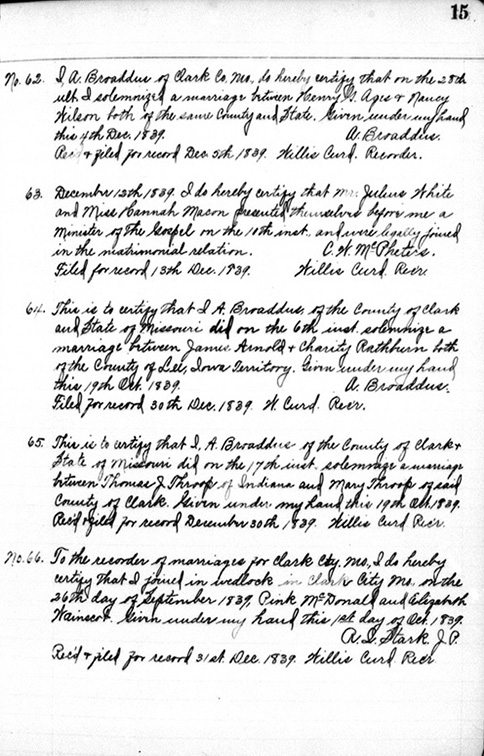 15
No. 62. I, A. Broaddus of Clark Co. Mo., do hereby certify that on the 28th
ult. I solemnized a marriage between Henry G. Ages & Nancy
Wilson both of the same County and State. Given under my hand
this 4th Dec. 1839. A. Broaddus.
Rec'd & filed for record Dec. 5th 1839. Willis Curd. Recorder.
63. December 12th 1839. I do hereby certify that Mr. Julius White
and Miss Hannah Mason presented themselves before me a
Minister of the Gospel on the 10th inst. and were legally joined
in the matrimonial relation. C. W. McPheters.
Filed for record 13th Dec. 1839. Willis Curd. Recr.
64. This is to certify that I A. Broaddus, of the County of Clark
and State of Missouri did on the 6th inst. solemnize a
marriage between James Arnold & Charity Rathburn both
of the County of Lee, Iowa Territory. Given under my hand
this 19th Oct. 1839. A. Broaddus.
Filed for record 30th Dec. 1839. W. Curd. Recr.
65. This is to certify that I, A. Broaddus of the County of Clark &
State of Missouri did on the 17th inst. solemnize a marriage
between Thomas J. Throop of Indiana and Mary Throop of said
County of Clark. Given under my hand this 19th Oct. 1839.
Rec'd & filed for record December 30th 1839. Willis Curd Recr.
No. 66. To the recorder of marriages for Clark City, Mo, I do hereby
certify that I joined in wedlock in Clark City Mo. on the
26th day of September 1839, Pink McDonald and Elizabeth
Wainscot. Given under my hand this 1st day of Oct. 1839.
Stark J. P.
Rec'd & filed for record 31st. Dec. 1839. Willis Curd Recr.